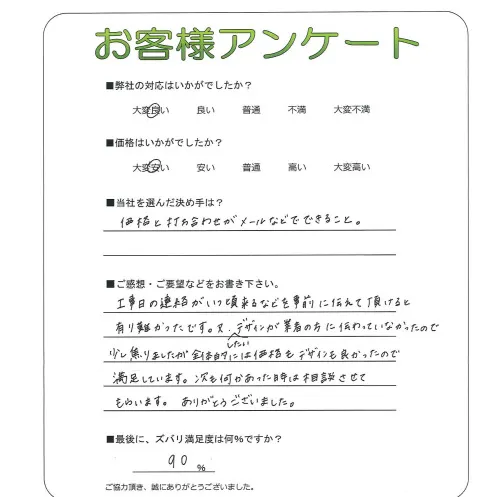 お客様アンケート
■弊社の対応はいかがでしたか？
大変良い 良い 普通 不満 大変不満
■価格はいかがでしたか？
大変安い 安い 普通 高い 大変高い
■当社を選んだ決め手は？
価格と打ち合わせがメールなどでできること。
■ご感想・ご要望などをお書き下さい。
工事日の連絡がいつ頃来るなどを事前に伝えて頂けると
有り難かったです。又、デザインが業者の方に伝わっていなかったので
少し焦りましたが全体的には価格もデザインも良かったので
満足しています。次も何かあった時は相談させて
もらいます。ありがとうございました。
■最後に、ズバリ満足度は何%ですか？
90 %
ご協力頂き、誠にありがとうございました。